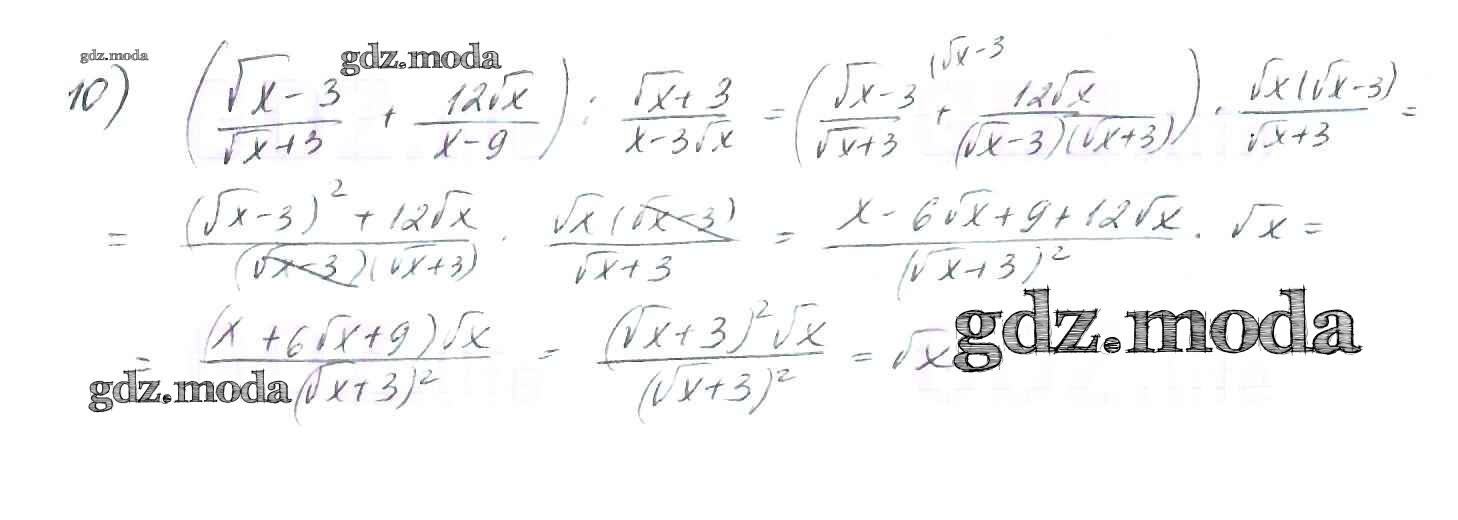 gdz.moda
gdz.moda
10) ((√x-3)/(√x+3) + 12√x/(x-9)) : (√x+3)/(x-3√x) = ((√x-3)/(√x+3) (√x-3 + 12√x/((√x-3)(√x+3))) · √x(√x-3)/(√x+3) =
= ((√x-3)² + 12√x)/((√x-3)(√x+3)) · √x(√x-3)/(√x+3) = (x-6√x+9+12√x)/(√x+3)² · √x =
= (x+6√x+9)√x/(√x+3)² = (√x+3)²√x/(√x+3)² = √x
gdz.moda
gdz.moda